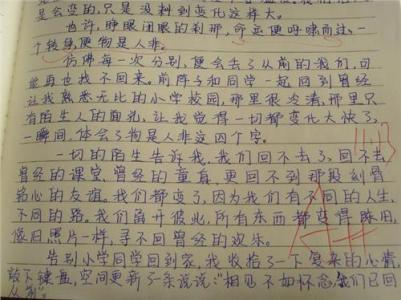 是会变的,只是没料到变化这样大。
也许,睁眼闭眼的刹那,命运便呼啸而过,一
个转身,便物是人非。
仿佛每一次分别,便会丢了从前的我们,可
能再也找不回来。前阵子和同学一起回到曾经
让我熟悉无比的小学校园,那里很冷清,那里只
有陌生人的面孔,让我觉得一切都变化太快了,
一瞬间,体会了物是人非这四个字。
一切的陌生告诉我,我们回不去了,回不去
曾经的课堂,曾经的童真,更回不到那段刻骨
铭心的友谊。我们都变了,因为我们有不同的人生,
不同的路。我们离开彼此,所有东西都变得陈旧,
像旧照片一样,寻不回曾经的欢乐。
告别小学同学回到家,我收拾了一下复杂的小情,
敲下键盘,空间更新了一条说说:"相见不如怀念,我们已回